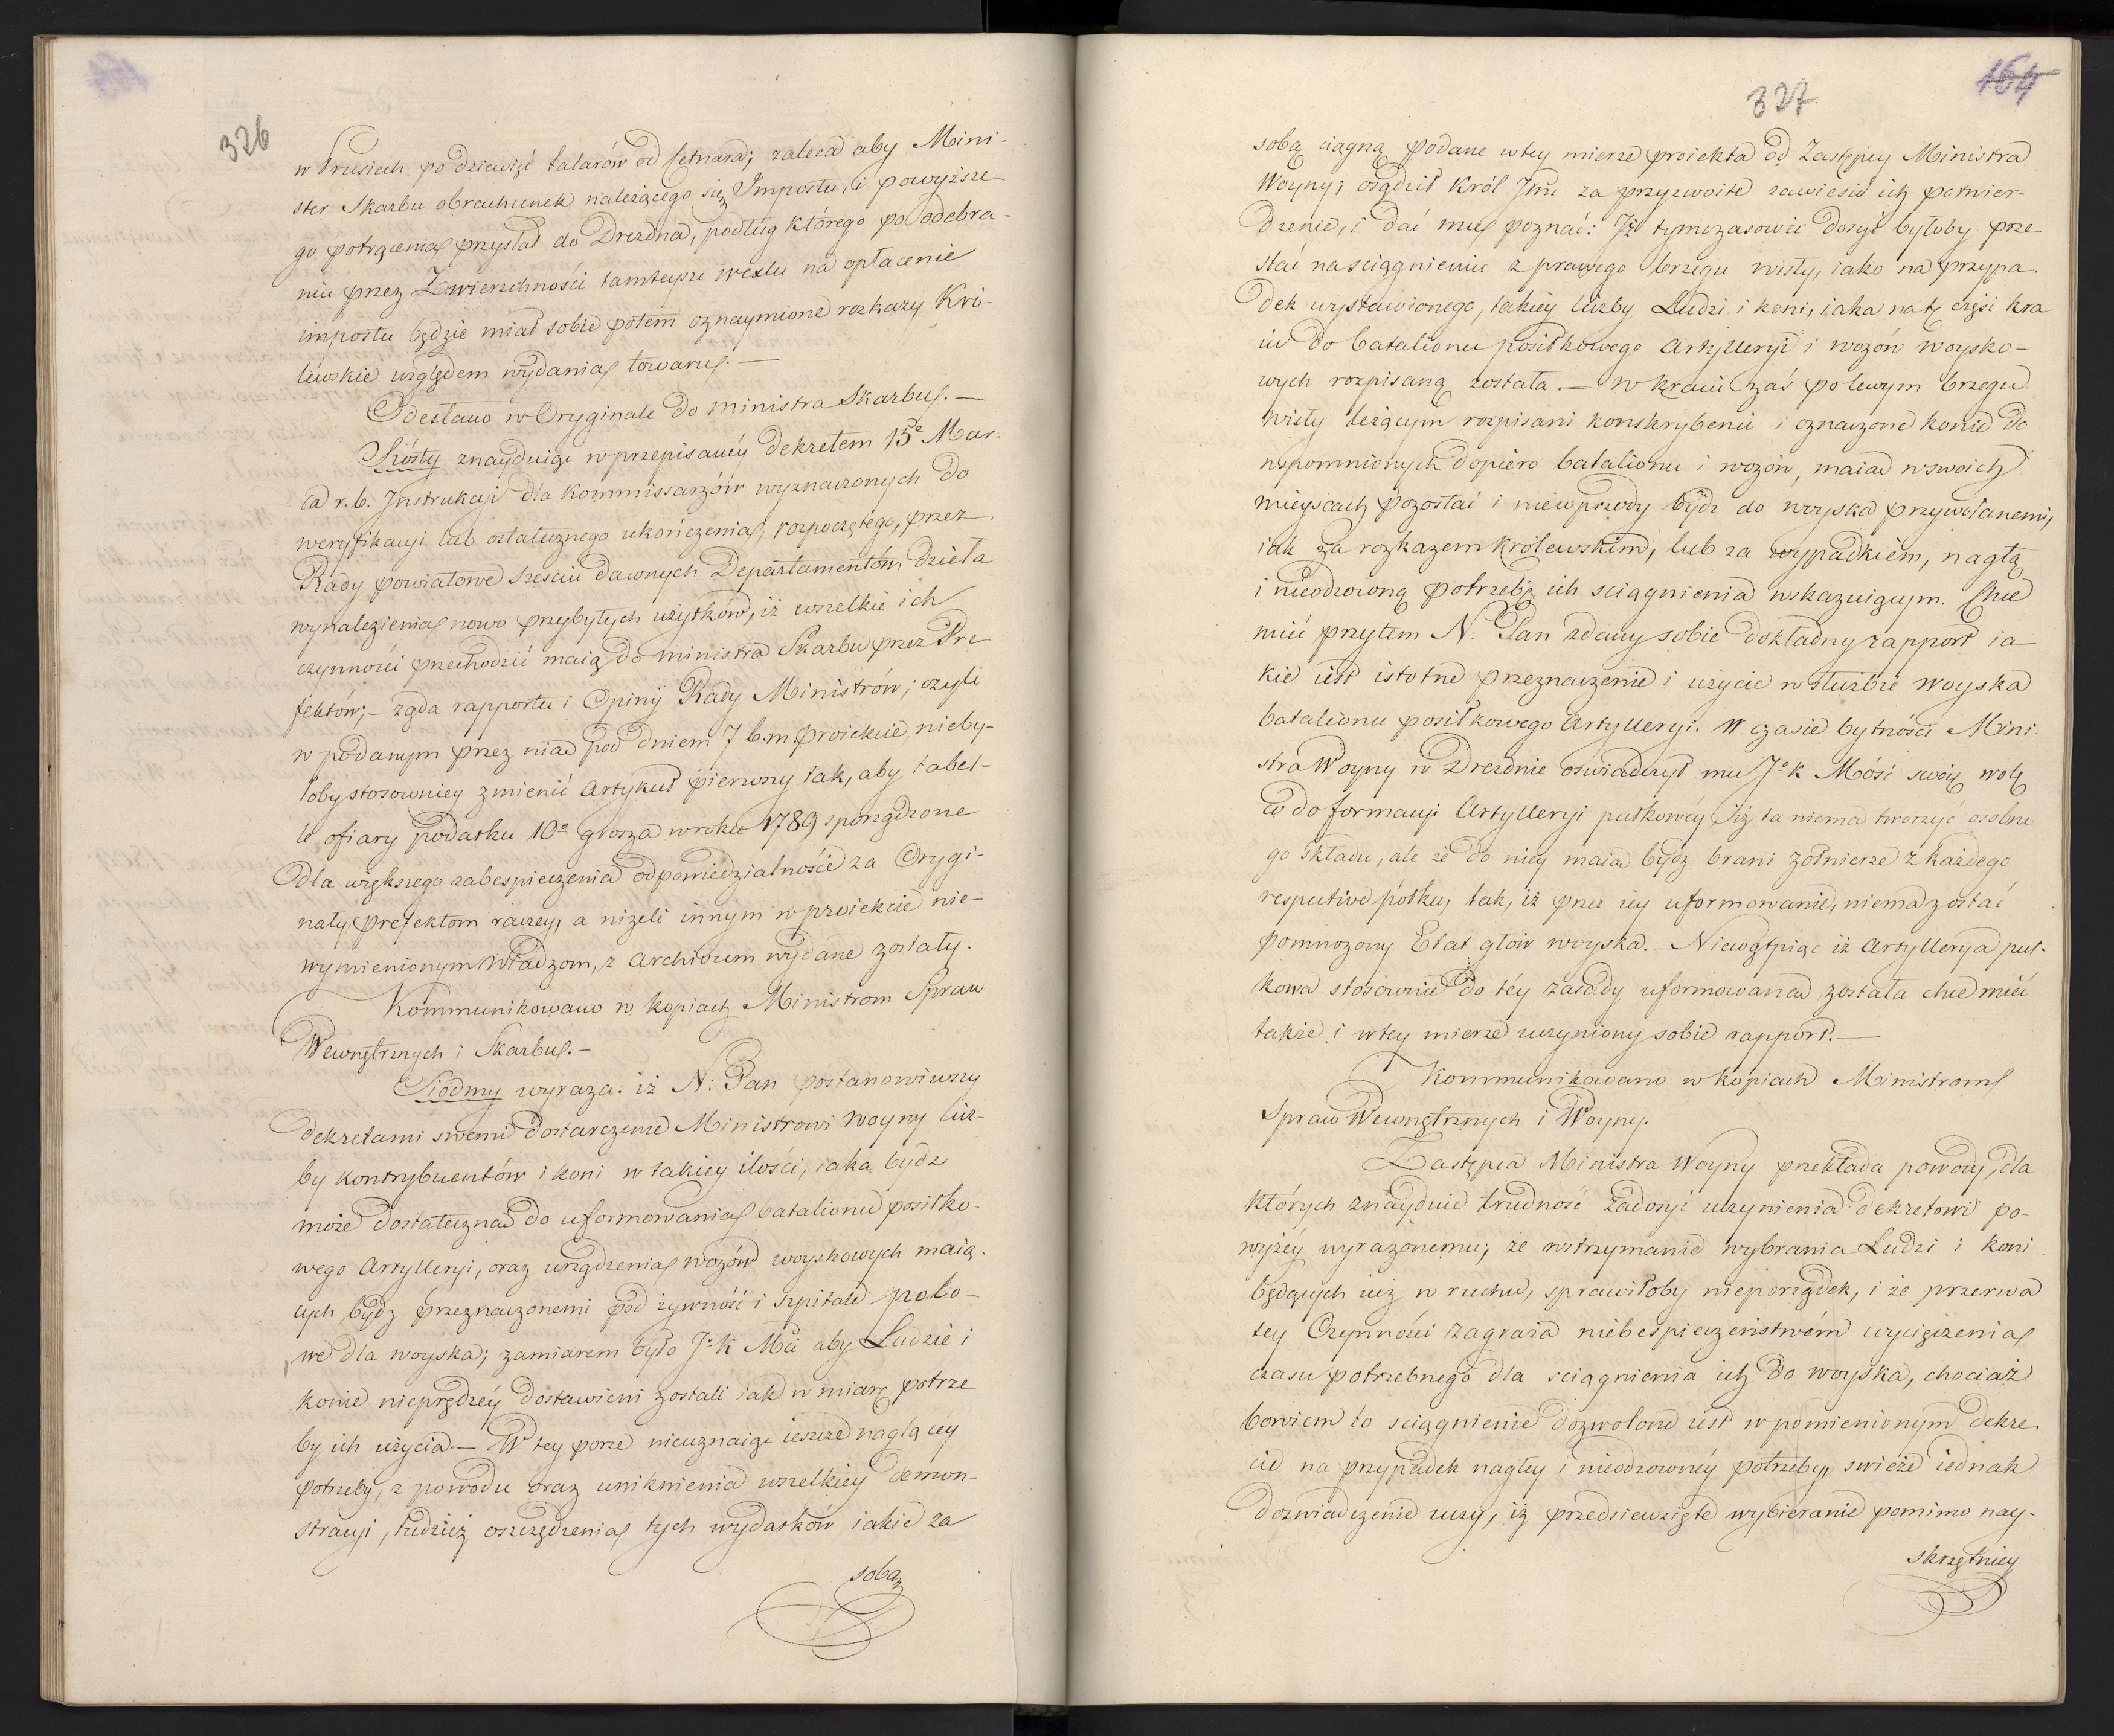 326
w Prusiech po dziewięć talarów od Cetnara; zaleca aby Mini-
ster Skarbu obrachunek należącego się Impostu, i powyższe-
go potrącenia przysłał do Drezna, podług którego po odebra-
niu przez Zwierzchności tamteysze wexlu na opłacenie
impostu będzie miał sobie potem oznaymione rozkazy Kró-
lewskie względem wydania towaru. —
Odesłano w Oryginale do ministra Skarbu. —
Szósty znayduiąc w przepisanéy dekretem 15o Mar-
ca r. b. Instrukcji dla Kommissarzów wyznaczonych do
weryfikacyi lub ostatecznego ukończenia, rozpoczętego, przez
Rady powiatowe sześciu dawnych Departamentów, dzieła
wynalezienia nowo przybyłych użytków, iż wszelkie ich
czynności przechodzić maią do ministra Skarbu przez Pre
fektów; — żąda rapportu i Opinÿ Rady Ministrów; czyli
w podanym przez nia pod dniem 7 b. m. proiekcie, nieby-
łoby stosowniey zmienić Artykuł pierwszy tak, aby tabel-
le ofiary podatku 10o grosza w roku 1789 sporządzone
dla większego zabespieczenia odpowiedzialności za Orygi-
nały, prefektom raczey, a niżeli innym w proiekcie nie-
wymienionym Władzom, z Archivum wydane zostały.
Kommunikowano w kopiach Ministrom Spraw
Wewnętrznych i Skarbu. —
Siódmy wyraza: iż N: Pan postanowiwszy
dekretami swemi dostarczenie Ministrowi Woyny licz-
by kontrybuentów i koni w takiey ilości, iaka bydz
może dostateczna do uformowania batalionu posiłko-
wego Artylleryi, oraz urządzenia wozów woyskowych maią-
cych bydz przeznaczonemi pod żywność i szpitale polo-
we dla woyska; zamiarem było Jo K Mci aby Ludzie i
konie nieprędzéy dostawieni zostali iak w miarę potrze
by ich użycia. — W tey porze nieuznaiąc ieszcze naglącey
potrzeby, z powodu oraz uniknienia wszelkiey demon-
stracyi, tudzież oszczędzenia tych wydatków iakie za
sobą
164
327
sobą ciągną podane w tey mierze proiekta od Zastępcy Ministra
Woyny; osądził Król Jmć za przyzwoite zawiesić ich potwier-
dzenie, i dać mu poznać: Iż tymczasowie dosyć byłoby prze
stać na sciągnieniu z prawego brzegu wisły, iako na przypa
dek wystawionego, takiey liczby Ludzi i koni, iaka na tę częśi kra
iu do batalionu posiłkowego Artylleryi i wozów woysko-
wych rozpisaną została. — W kraiu zaś po lewym brzegu
wisły leżącym rozpisani konskrybenci i oznaczone konie do
wspomnionych dopiero batalionu i wozów, maia w swoich
mieyscach pozostać i niewprzody bydz do woyska przywołanemi,
iak za rozkazem królewskim, lub za wypadkiem, nagłą
i nieodzowną potrzebę ich sciągnienia wskazuiącym. Chce
mieć przytem N: Pan zdany sobie dokładny rapport ia-
kie iest istotne przeznaczenie i użycie w służbie woyska
batalionu posiłkowego Artylleryi. W czasie bytności Mini-
stra Woyny w Dreznie oswiadczył mu Jo K Mość swoię wolę
co do formacyi Artylleryi pułkowéy, iż ta niema tworzyć osobne
go składu, ale że do niey maia bydz brani żołnierze z każdego
respective półku, tak, iż przez iey uformowanie, niema zostać
pomnożony Etat głów woyska. — Niewątpiąc iż Artyllerya puł-
kowa stosownie do téy zasady uformowana została chce mieć
także i w tey mierze uczyniony sobie rapport. —
Kommunikowano w kopiach Ministrom
Spraw Wewnętrznych i Woyny.
Zastępca Ministra Woyny przekłada powody, dla
których znayduie trudność zadosyć uczynienia dekretowi po-
wyżéy wyrazonemu; że wstrzymanie wybrania Ludzi i koni
będących iuż w ruchu, sprawiłoby nieporządek, i że przerwa
tey Czynności zagraża niebespieczeństwém wycięczenia
czasu potrzebnego dla sciągnienia ich do woyska, chociaż
bowiem to sciągnienie dozwolone iest w pomienionym dekre
cie na przypadek nagłey i nieodzownéy potrzeby, swieże iednak
doswiadczenie uczy, iż przedsiewzięte wybieranie pomimo nay-
skrzętniey